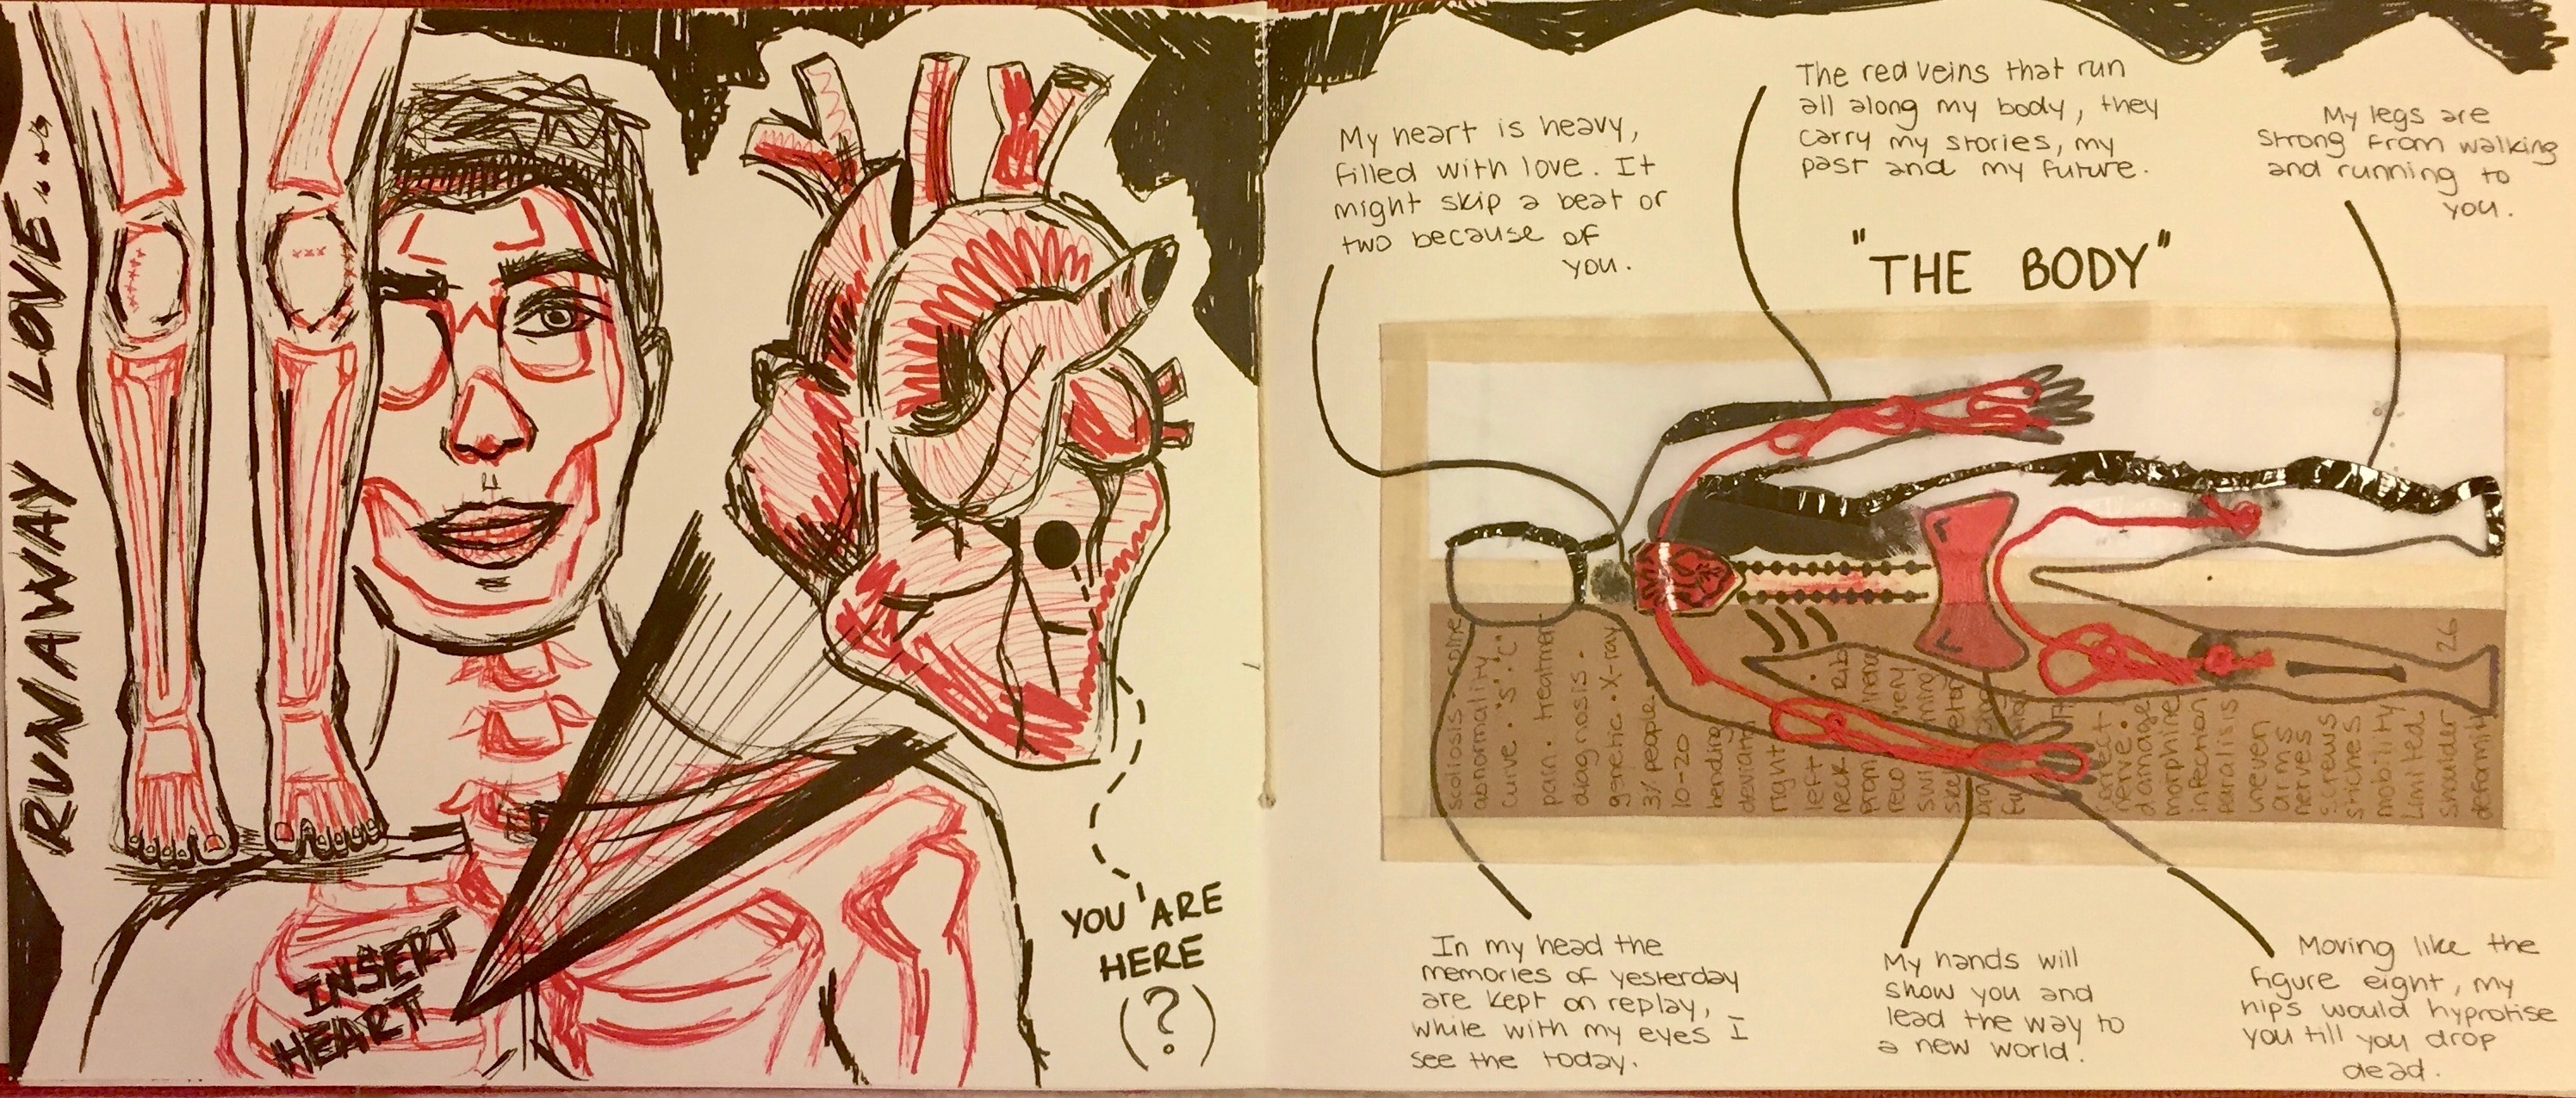 RUNAWAY LOVE...
INSERT
HEART
YOU ARE
HERE
(?)
My heart is heavy,
filled with love. It
might skip a beat or
two because of
you.
The red veins that run
all along my body, they
carry my stories, my
past and my future.
My legs are
strong from walking
and running to
you.
"THE BODY"
scoliosis. spine
abnormality
curve. "S". "C".
pain. treatment
diagnosis.
genetic. X-ray
3% people.
10-20
bending
right
left
neck. Rib
nerve.
damage
morphine
infection
paralisis
uneven
arms
nerves
screws
stiches
mobility
Limited
shoulder 26
deformity
In my head the
memories of yesterday
are kept on replay,
while with my eyes I
see the today.
My hands will
show you and
lead the way to
a new world.
Moving like the
figure eight, my
hips would hypnotise
you till you drop
dead.